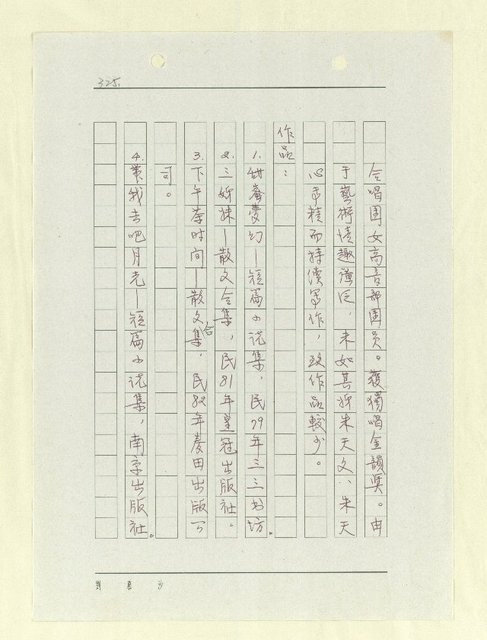 325.
合唱團女高音部團員。獲獨唱金韻獎。由
于藝術情趣廣泛，未如其姊朱天文、朱天
心專精而持續寫作，故作品較少。
作品：
1. 綠蕾夢幻—短篇小说集，民79年三三书坊
2. 三姊妹—散文合集，民81年皇冠出版社。
3. 下午茶时间—散文合集，民82年麥田出版公
司。
4. 帶我去吧月光—短篇小说集，南京出版社。